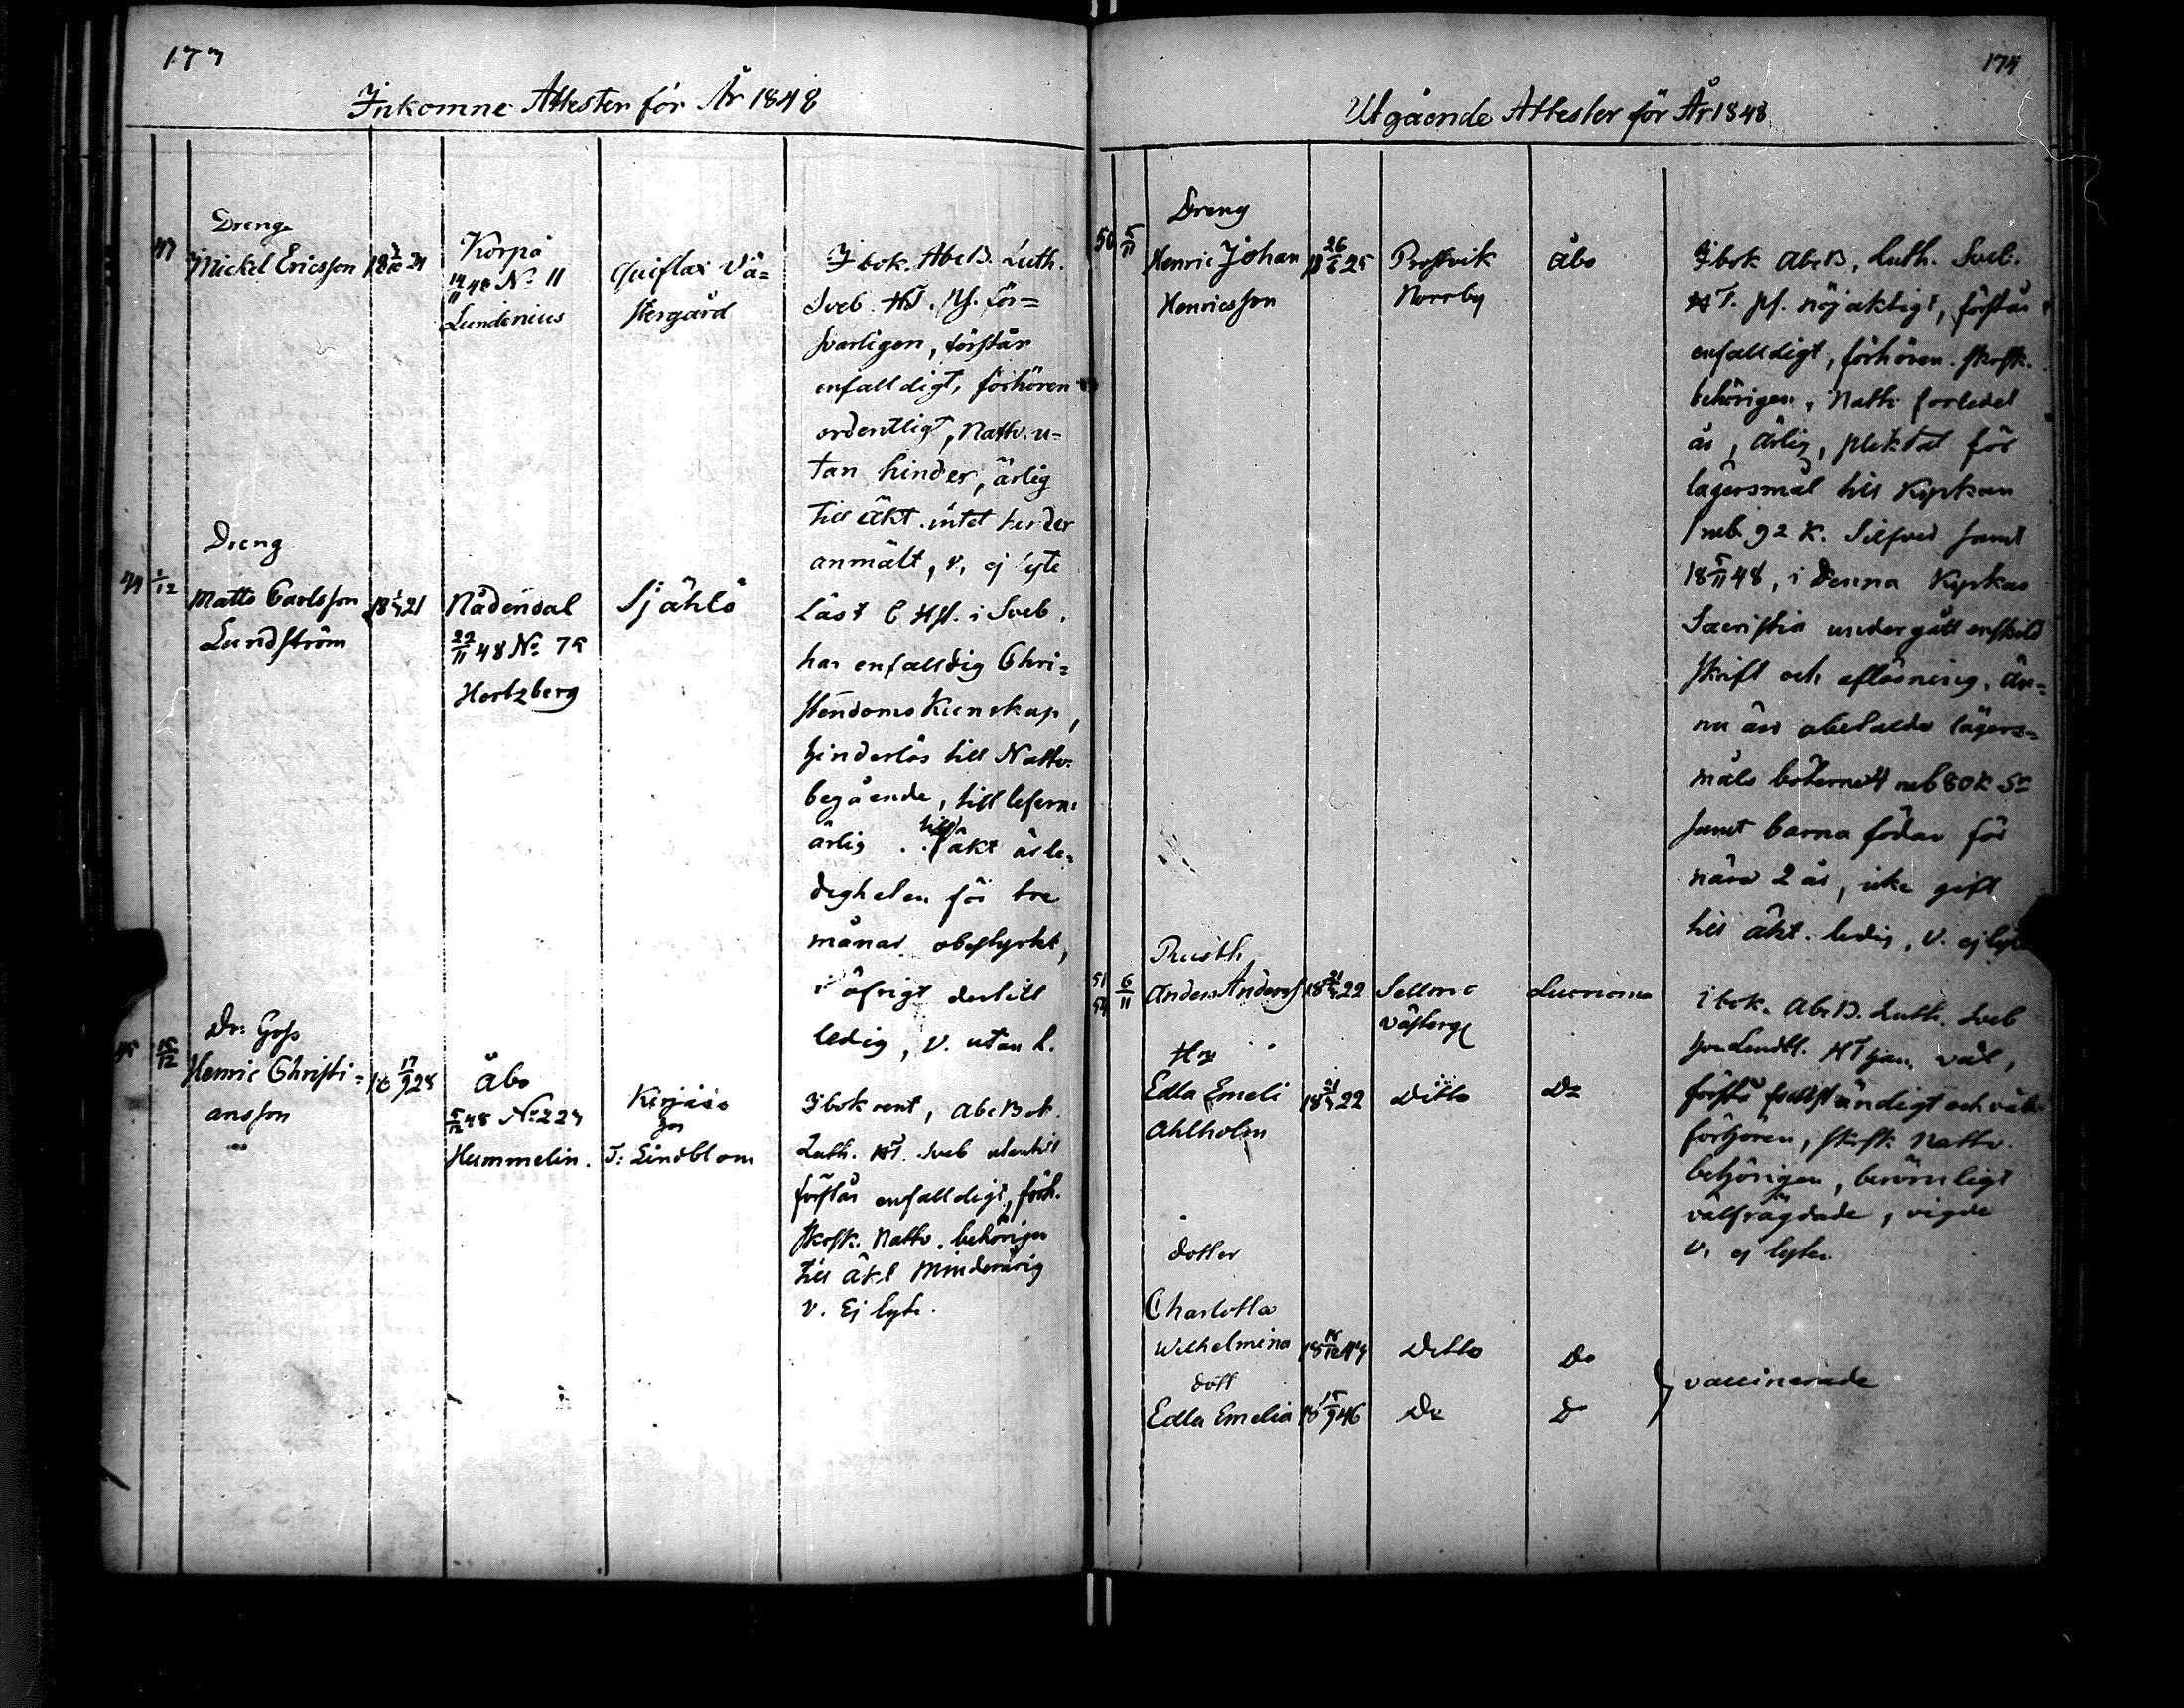 177
Inkomne Attester för År 1848
47
Dreng
Mickel Ericsson
Korpo
14/11 48 No 11
Lundenius
Qviflax Vä=
stergård
I bok. AbcB. Luth.
Sveb. HT. Ps. för=
svarligen, förstår
enfalldigt, förhören
ordentligt, Nattv. u=
tan hinder, ärlig
till äkt. intet hinder
anmält, v, ej lyte
Dreng
Matts Carlsson
Lundström
18 21
Nådendal
22/11 48 No 75
Hertzberg
Själö
Läst C Hst. i Sveb.
har enfalldig Chri=
stendoms Kunskap,
hinderlös till Nattv:
begående, till lefern:
ärlig till äkt är le=
digheten för tre
månar obestyrkt,
i öfrigt dertill
ledig, v. utan l.
15/12
Dr: Goss
Henric Christi=
ansson
18 17/9 28
Åbo
5/12 48 No 223
Hummelin.
Kirjais
hos
T: Lindblom
I bok rent, Abc Bok.
Luth. HT. Sveb utantill
förstår enfalldigt, förh.
skrift. Nattv. behörigen
till äkt Minderårig
v. Ej lyte.
174
Utgående Attester för År 1848
50 5/11
Dreng
Henric Johan
Henricsson
18 26/6 25
Prostvik
Norrby
Åbo
I bok AbcB, Luth. Sveb.
HT. ps. nöjaktigt, förstår
enfalldigt, förhören. skrift.
behörigen, Nattv förledet
år, ärlig, pliktat för
lägersmål till Kyrkan
1 rub. 92 K. Silfver samt
18 5/11 48, i denna Kyrkas
Sacristia undergått enskild
skrift och aflösning, än=
nu äro obetalde lägers=
måls böterne 4 rub 80 K Sr
samt barna födan för
nära 2 år, icke gift
till äkt. ledig, v. ej lyte
51
54
6/11
Rusth
Anders Anderss
18 22
Sellmo
Västerg
Luonoma
i bok. AbcB. Luth. Sveb
HT väl,
förstå fullständigt och väl
förhören, skrift. Nattv.
behörigen, berömligt
välfrägdade, vigde
v, ej lyte.
Hu
Edla Emeli
Ahlholm
18 21 22
Ditto
Do
dotter
Charlotta
Wilhelmina
18 44
Ditto
Do
vaccinerade
dott
Edla Emelia
18 15/9 46
Do
Do